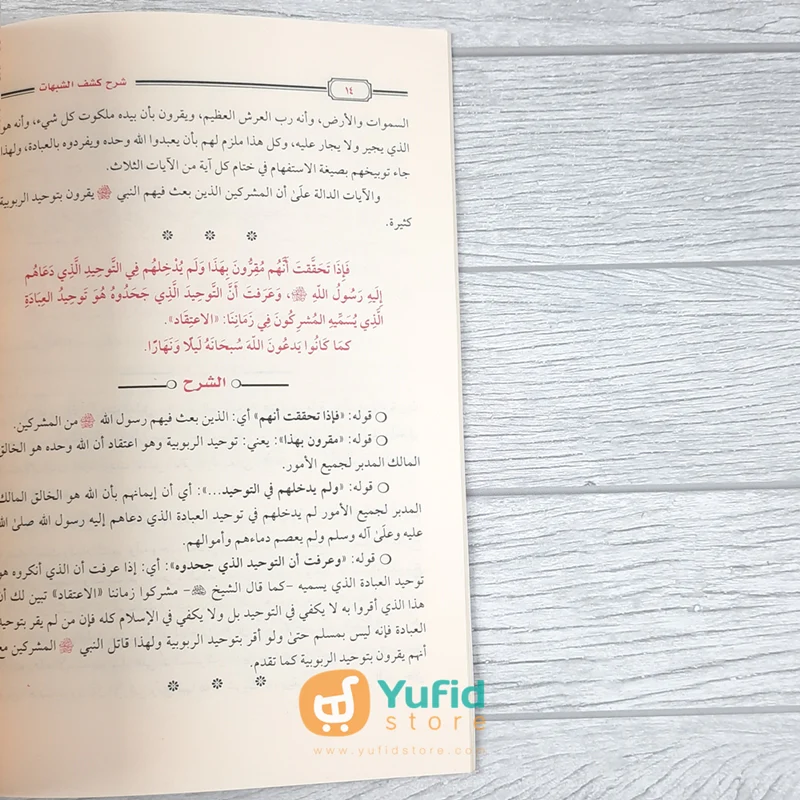 شرح كشف الشبهات
١٤
السموات والأرض، وأنه رب العرش العظيم، ويقرون بأن بيده ملكوت كل شيء، وأنه هو
الذي يجير ولا يجار عليه، وكل هذا ملزم لهم بأن يعبدوا الله وحده ويفردوه بالعبادة، ولهذا
جاء توبيخهم بصيغة الاستفهام في ختام كل آية من الآيات الثلاث.
والآيات الدالة علىٰ أن المشركين الذين بعث فيهم النبي ﷺ يقرون بتوحيد الربوبية
كثيرة.
فَإِذَا تَحَقَّقتَ أَنَّهُم مُقِرُّونَ بِهَذَا وَلَم يُدْخِلهُم فِي التَّوحِيدِ الَّذِي دَعَاهُم
إِلَيهِ رَسُولُ اللَّهِ ﷺ، وَعَرَفتَ أَنَّ التَّوحِيدَ الَّذِي جَحَدُوهُ هُوَ تَوحِيدُ العِبَادَةِ
الَّذِي يُسَمِّيهِ المُشرِكُونَ فِي زَمَانِنَا: «الاعتِقَاد».
كَمَا كَانُوا يَدعُونَ اللَّهَ سُبحَانَهُ لَيلًا وَنَهَارًا.
الشرح
قوله: «فإذا تحققت أنهم» أي: الذين بعث فيهم رسول الله ﷺ من المشركين.
قوله: «مقرون بهذا»: يعني: توحيد الربوبية وهو اعتقاد أن الله وحده هو الخالق
المالك المدبر لجميع الأمور.
قوله: «ولم يدخلهم في التوحيد...»: أي أن إيمانهم بأن الله هو الخالق المالك
المدبر لجميع الأمور لم يدخلهم في توحيد العبادة الذي دعاهم إليه رسول الله صلىٰ الله
عليه وعلىٰ آله وسلم ولم يعصم دماءهم وأموالهم.
قوله: «وعرفت أن التوحيد الذي جحدوه»: أي: إذا عرفت أن الذي أنكروه هو
توحيد العبادة الذي يسميه -كما قال الشيخ - مشركوا زماننا «الاعتقاد» تبين لك أن
هذا الذي أقروا به لا يكفي في التوحيد بل ولا يكفي في الإسلام كله فإن من لم يقر بتوحيد
العبادة فإنه ليس بمسلم حتىٰ ولو أقر بتوحيد الربوبية ولهذا قاتل النبي ﷺ المشركين مع
أنهم يقرون بتوحيد الربوبية كما تقدم.
Yufid
store
www.yufidstore.com